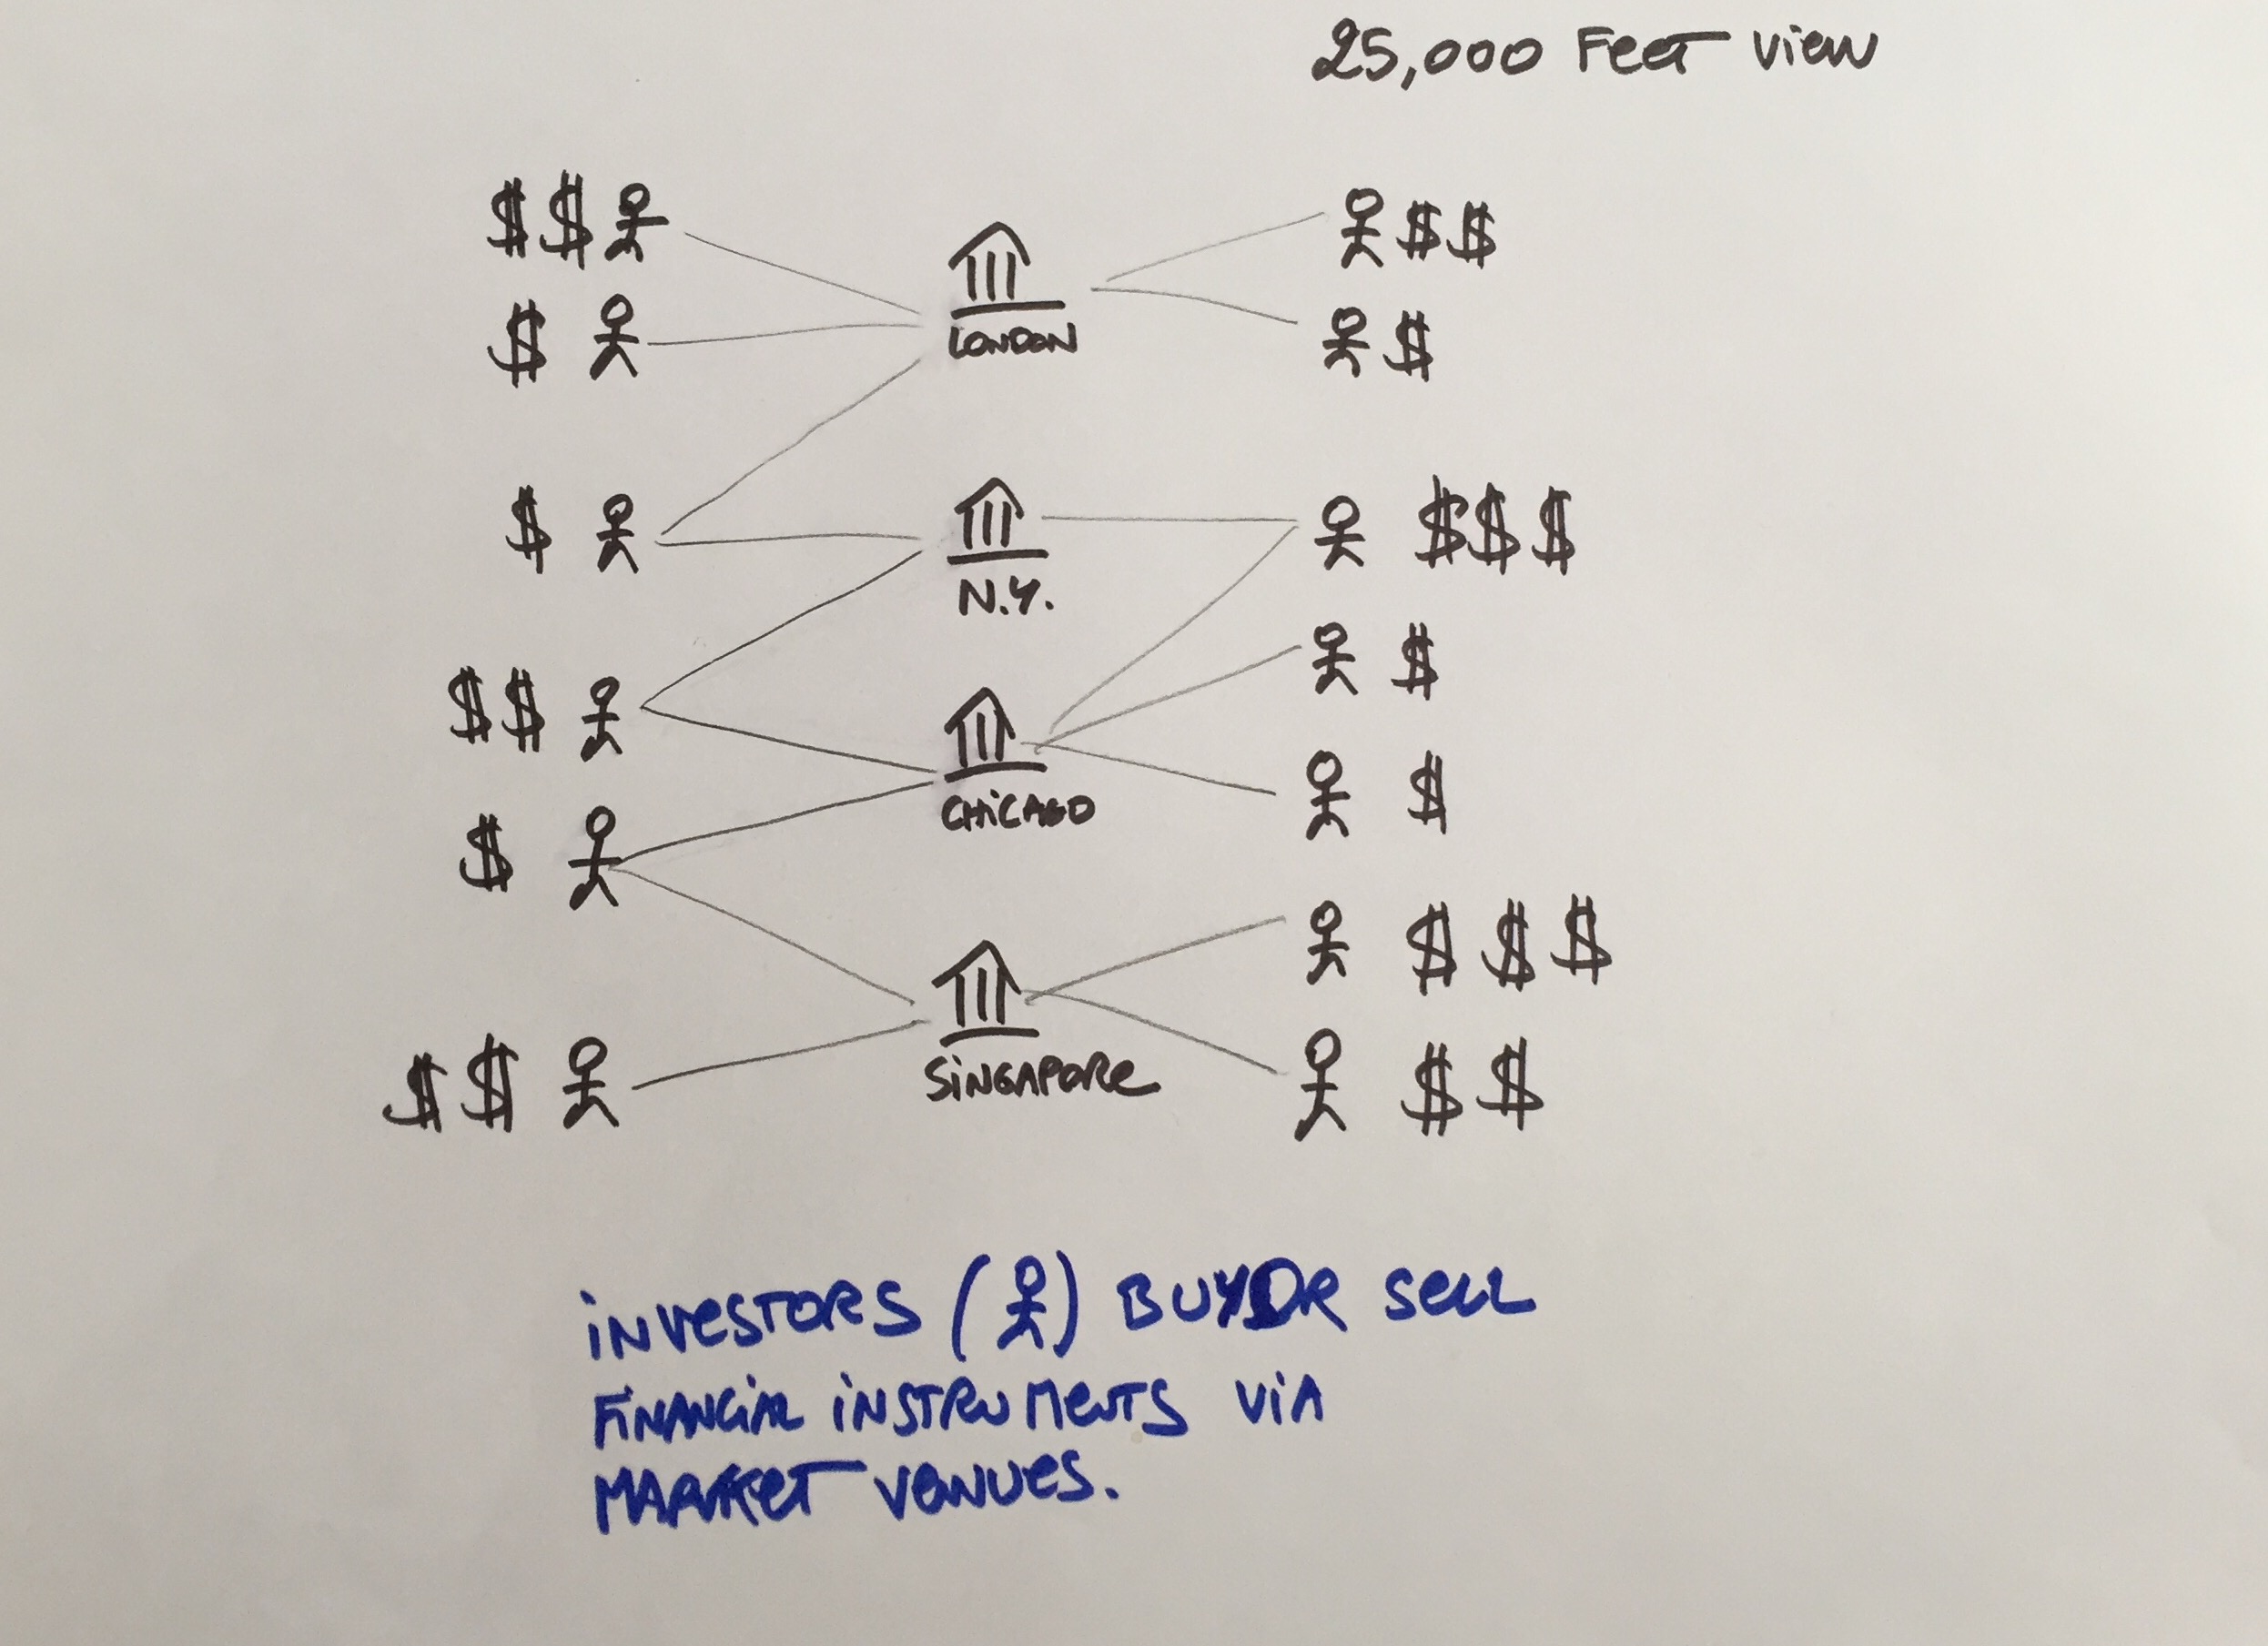 25,000 Feet view
$$ $$
$ $
LONDON
$ $$$
N.Y.
$
$$
$
CHiCAGO
$
$$$
$$ $$
SiNGAPORe
iNVeSTORS ( ) BUY OR SeLL
FiNANCiAL iNSTRUMeNTS ViA
MARKeT VeNUeS.